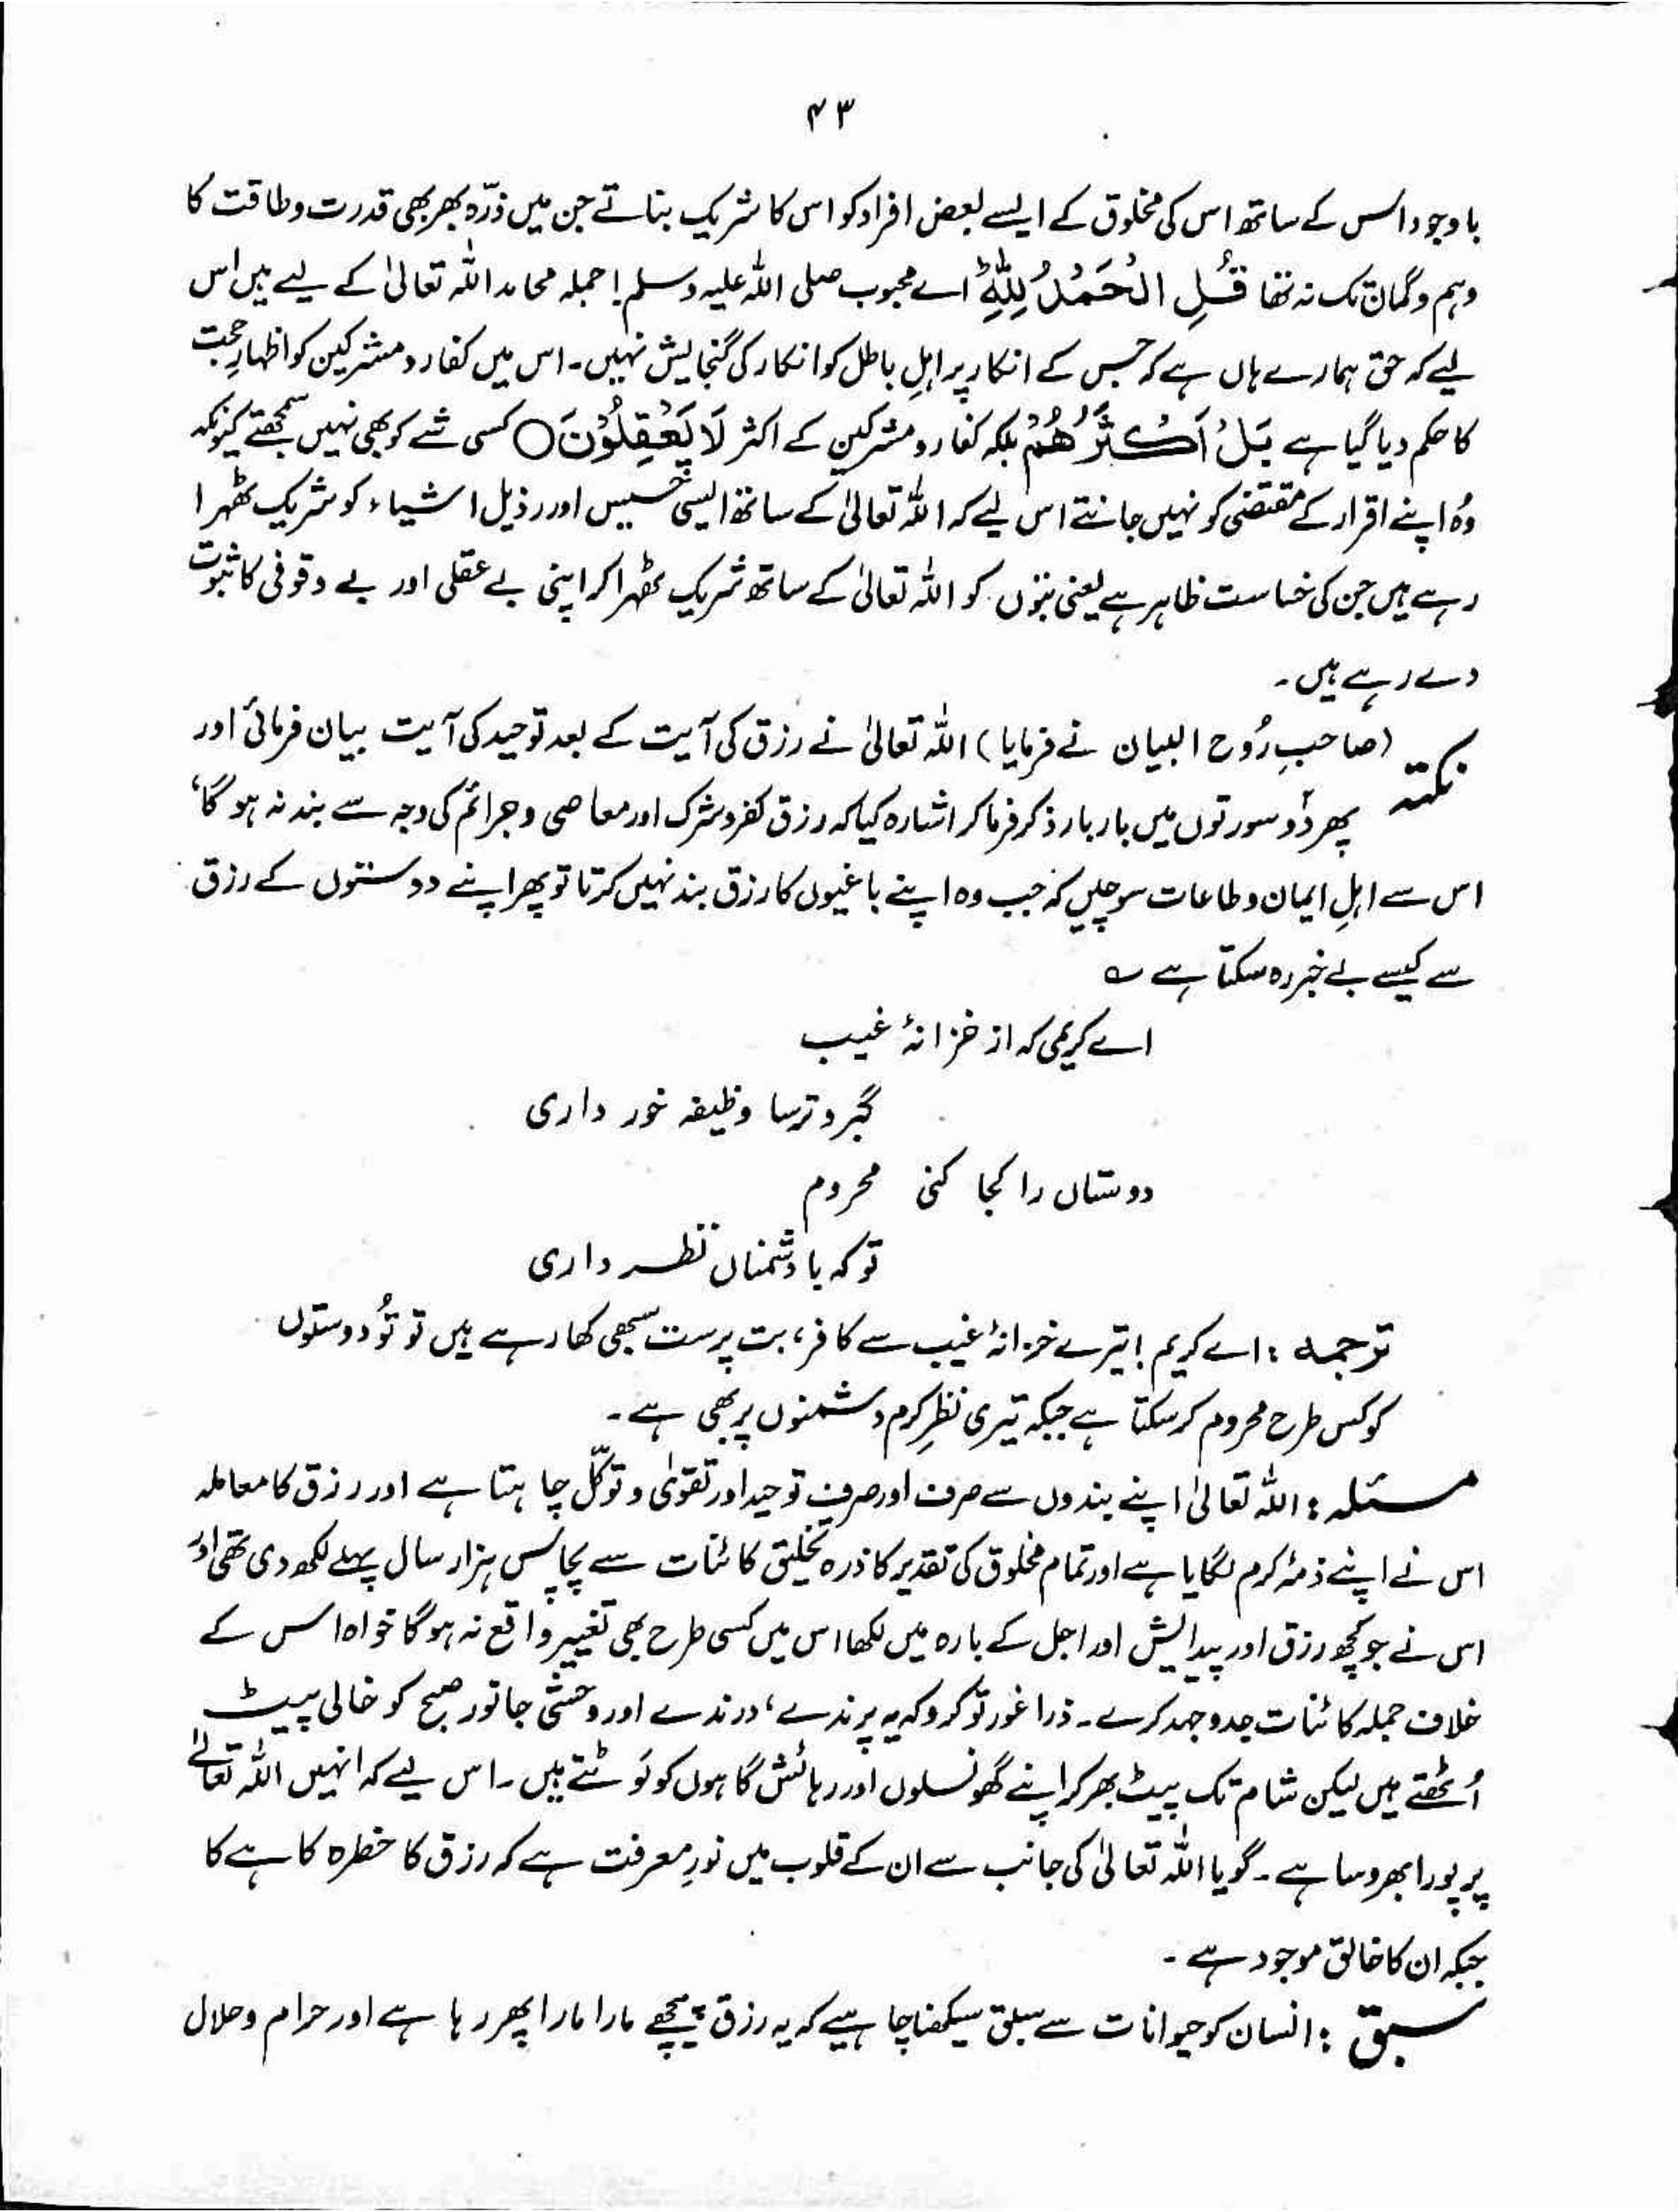 ۴۳
باوجود اس کے ساتھ اس کی مخلوق کے ایسے بعض افراد کو اس کا شریک بناتے جن میں ذرّہ بھر بھی قدرت و طاقت کا
وہم و گمان تک نہ تھا قُلِ الْحَمْدُ لِلّٰهِ اے محبوب صلی اللہ علیہ وسلم! جملہ محامد اللہ تعالیٰ کے لیے ہیں اس
لیے کہ حق ہمارے ہاں ہے کہ جس کے انکار پر اہلِ باطل کو انکار کی گنجایش نہیں۔ اس میں کفار و مشرکین کو اظہارِ حجت
کا حکم دیا گیا ہے بَلْ اَكْثَرُهُمْ بلکہ کفار و مشرکین کے اکثر لَا يَعْقِلُوْنَ○ کسی شے کو بھی نہیں سمجھتے کیونکہ
وُہ اپنے اقرار کے مقتضیٰ کو نہیں جانتے اس لیے کہ اللہ تعالیٰ کے ساتھ ایسی خسیس اور رذیل اشیاء کو شریک ٹھہرا
رہے ہیں جن کی خساست ظاہر ہے یعنی بتوں کو اللہ تعالیٰ کے ساتھ شریک ٹھہرا کر اپنی بے عقلی اور بے وقوفی کا ثبوت
دے رہے ہیں۔
نکتہ (صاحبِ رُوح البیان نے فرمایا) اللہ تعالیٰ نے رزق کی آیت کے بعد توحید کی آیت بیان فرمائی اور
پھر دُو سورتوں میں بار بار ذکر فرما کر اشارہ کیا کہ رزق کفر و شرک اور معاصی و جرائم کی وجہ سے بند نہ ہو گا،
اس سے اہلِ ایمان و طاعات سوچیں کہ جب وہ اپنے باغیوں کا رزق بند نہیں کرتا تو پھر اپنے دوستوں کے رزق
سے کیسے بے خبر رہ سکتا ہے ؎
اے کریمی کہ از خزانۂ غیب
گبر و ترسا وظیفہ خور داری
دوستاں را کجا کنی محروم
تو کہ با دشمناں نظر داری
ترجمہ: اے کریم! تیرے خزانۂ غیب سے کافر، بت پرست سبھی کھا رہے ہیں تو تُو دوستوں
کو کس طرح محروم کر سکتا ہے جبکہ تیری نظرِ کرم دشمنوں پر بھی ہے۔
مسئلہ: اللہ تعالیٰ اپنے بندوں سے صرف اور صرف توحید اور تقویٰ و توکّل چاہتا ہے اور رزق کا معاملہ
اس نے اپنے ذمۂ کرم لگایا ہے اور تمام مخلوق کی تقدیر کا ذرہ تخلیق کائنات سے پچاس ہزار سال پہلے لکھ دی تھی اور
اس نے جو کچھ رزق اور پیدایش اور اجل کے بارہ میں لکھا اس میں کسی طرح بھی تغییر واقع نہ ہو گا خواہ اس کے
خلاف جملہ کائنات جدوجہد کرے۔ ذرا غور تو کرو کہ یہ پرندے، درندے اور وحشی جانور صبح کو خالی پیٹ
اُٹھتے ہیں لیکن شام تک پیٹ بھر کر اپنے گھونسلوں اور رہائش گاہوں کو لَوٹتے ہیں۔ اس لیے کہ انہیں اللہ تعالےٰ
پر پورا بھروسا ہے۔ گویا اللہ تعالیٰ کی جانب سے ان کے قلوب میں نورِ معرفت ہے کہ رزق کا خطرہ کاہے کا
جبکہ ان کا خالق موجود ہے۔
سبق: انسان کو حیوانات سے سبق سیکھنا چاہیے کہ یہ رزق پیچھے مارا مارا پھر رہا ہے اور حرام و حلال